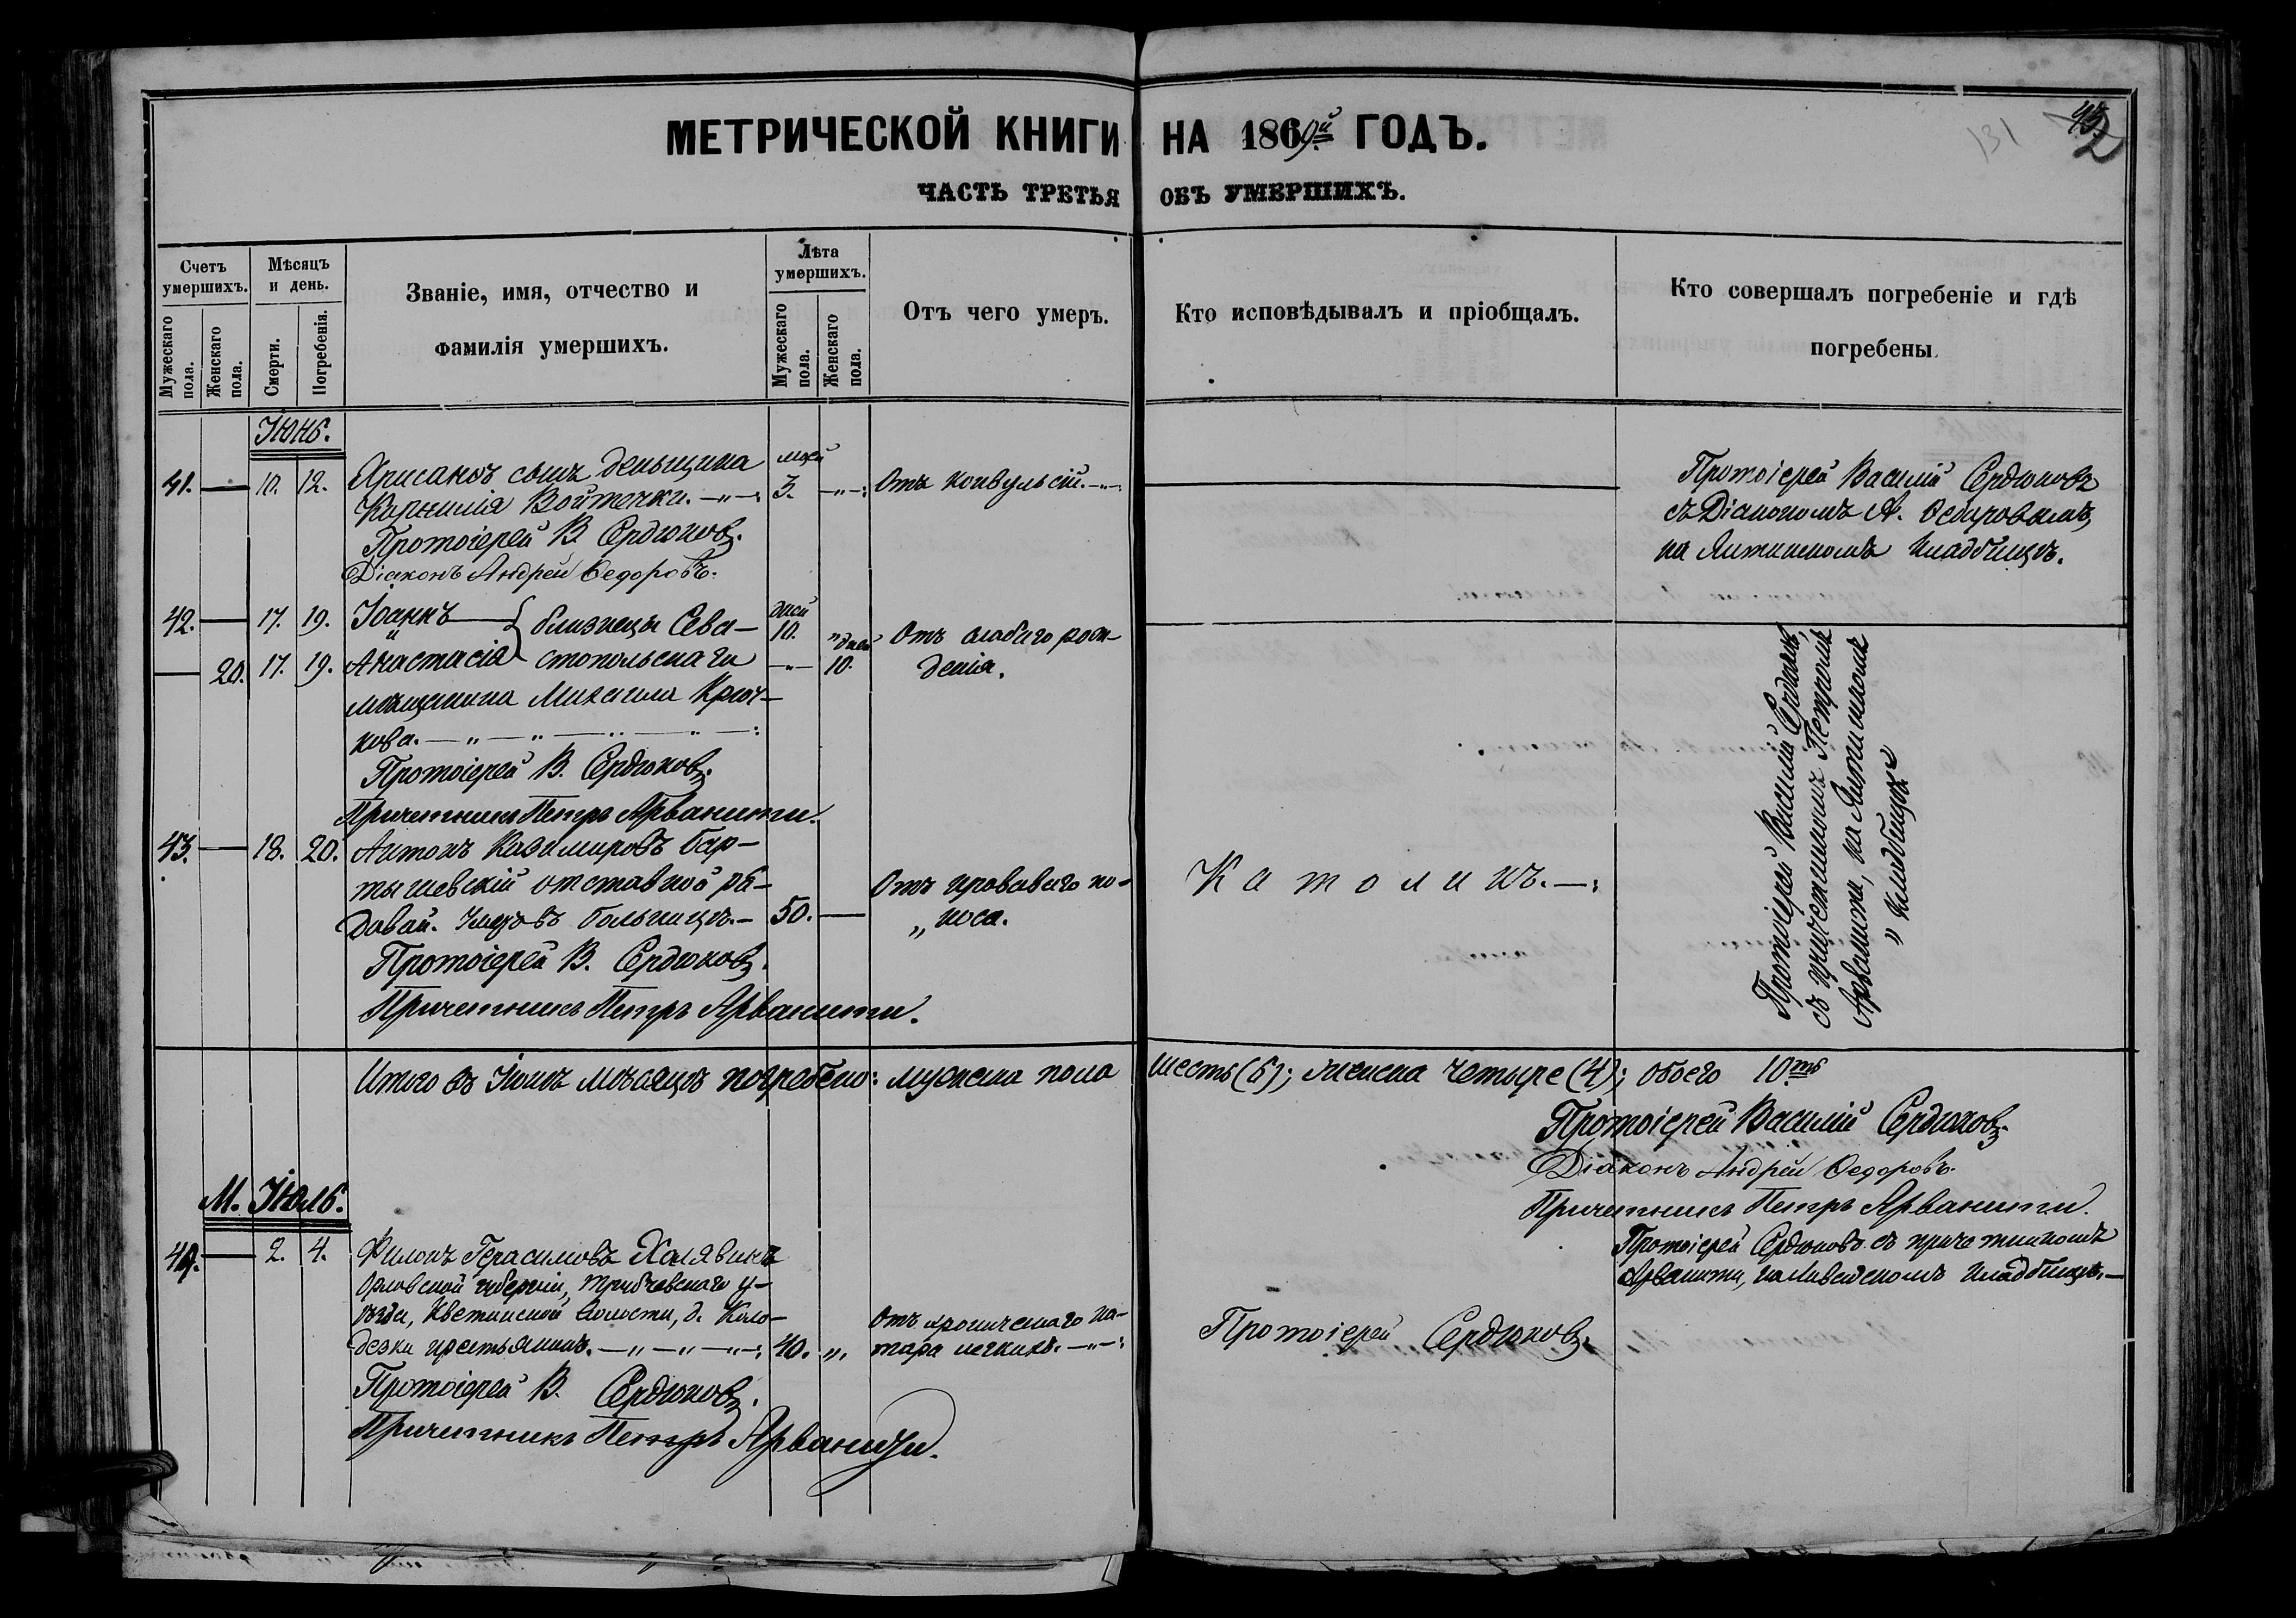 МЕТРИЧЕСКОЙ КНИГИ НА 1869й ГОДЪ.
131
ЧАСТЬ ТРЕТЬЯ ОБЪ УМЕРШИХЪ.
Счетъ умершихъ.
Мужескаго пола.
Женскаго пола.
Мѣсяцъ и день.
Смерти.
Погребенія.
Званіе, имя, отчество и
фамилія умершихъ.
Лѣта умершихъ.
Мужескаго пола.
Женскаго пола.
Отъ чего умеръ.
Кто исповѣдывалъ и пріобщалъ.
Кто совершалъ погребеніе и гдѣ
погребены.
Іюнь.
41. — 10. 12. Хрисанѳъ сынъ деньщика
Корнилія Войтечки. 3. Отъ конвульсій.
Протоіерей В. Сердюковъ.
Діаконъ Андрей Ѳедоровъ.
Протоіерей Василій Сердюковъ
съ Діакономъ А. Ѳедоровымъ,
на Ялтинскомъ кладбищѣ.
42. — 17. 19. Іоаннъ близнецы Сева- дней 10.
— 20. 17. 19. Анастасія стопольскаго дней 10.
мѣщанина Михаила Крюч-
кова.
Отъ слабаго рож-
денія.
Протоіерей В. Сердюковъ.
Причетникъ Петръ Арванити.
43. — 18. 20. Антонъ Казимировъ Бар-
тышевскій отставной ря-
давой. Умеръ въ больницѣ. 50. —
Отъ кроваваго по-
носа.
Католикъ.
Протоіерей В. Сердюковъ.
Причетникъ Петръ Арванити.
Протоіерей Василій Сердюковъ,
съ причетникомъ Петромъ
Арванити, на Ялтинскомъ
кладбищѣ
Итого въ Іюнѣ мѣсяцѣ погребено: мужеска пола шесть (6); женска четыре (4); обоего 10ть
Протоіерей Василій Сердюковъ.
Діаконъ Андрей Ѳедоровъ.
Причетникъ Петръ Арванити.
М. Іюль.
44. — 2. 4. Филонъ Герасимовъ Халявинъ
Орловской губерніи, Трубчевскаго у-
ѣзда, Волости, д. Коло-
дезки крестьянинъ. 40.
Отъ хроническаго ка-
тара легкихъ.
Протоіерей Сердюковъ.
Протоіерей Сердюковъ съ причетникомъ
Арванити, на Ливадскомъ кладбищѣ.
Протоіерей В. Сердюковъ.
Причетникъ Петръ Арваниди.